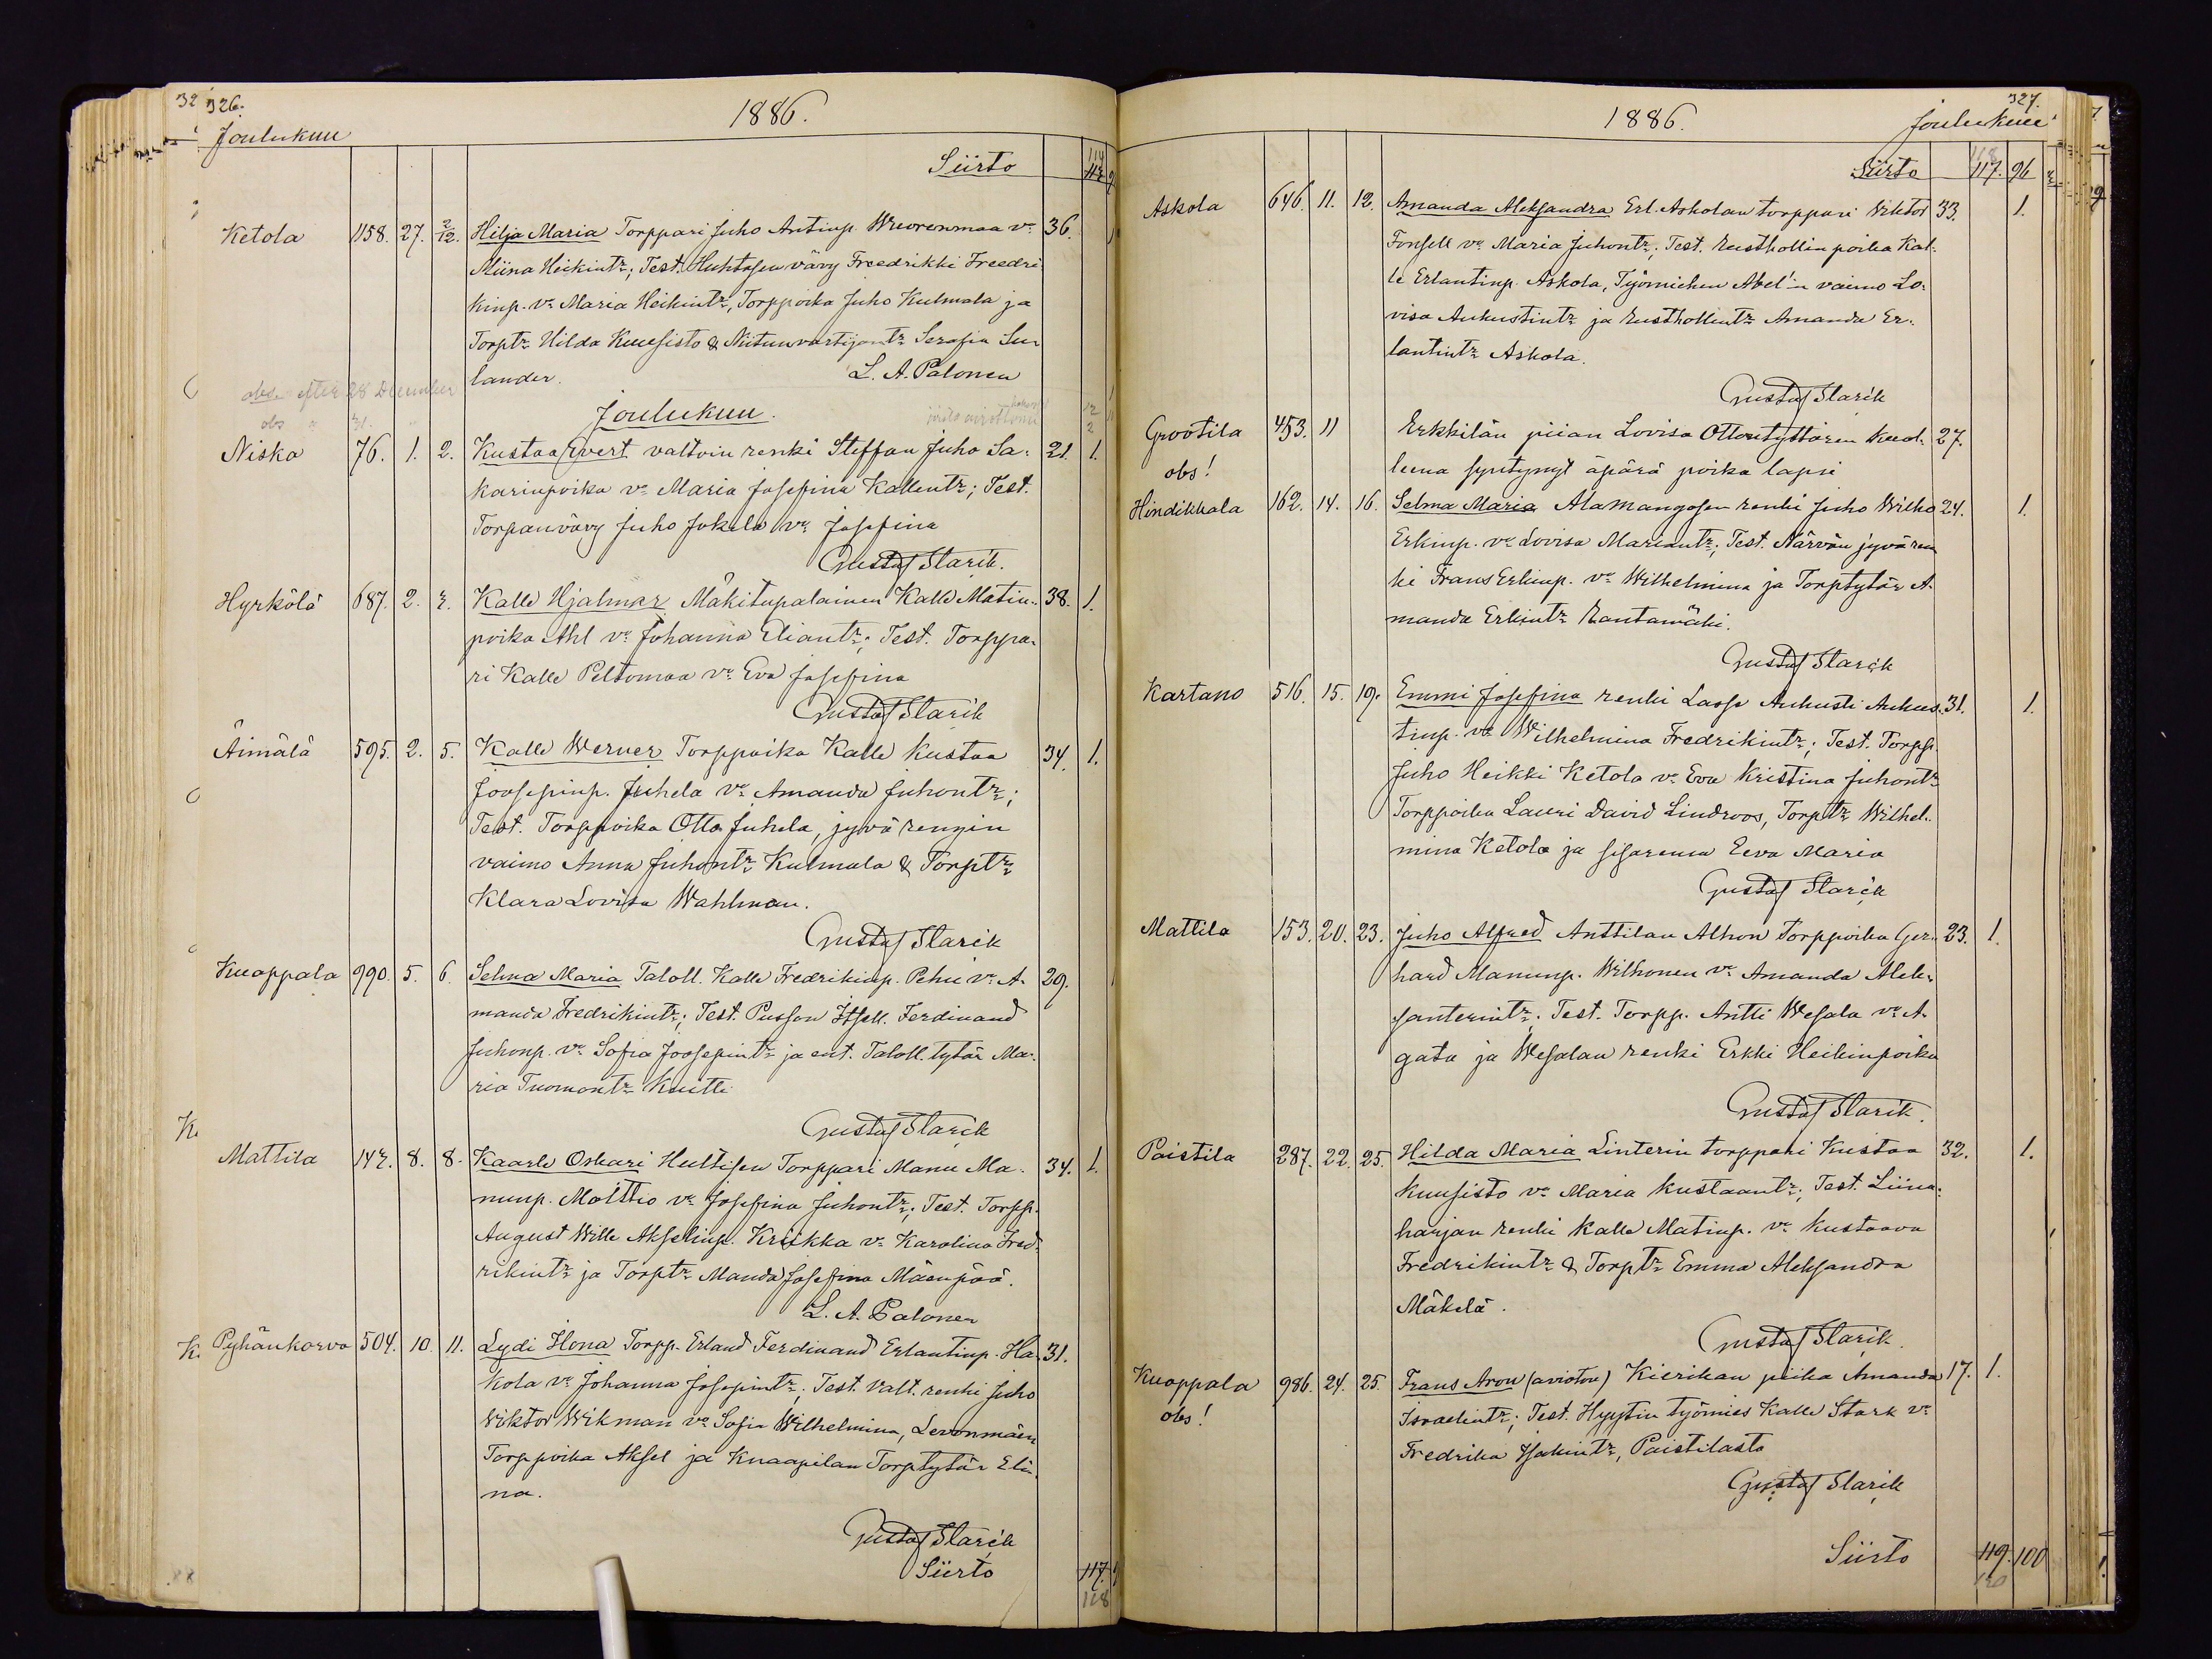 326.
1886.
Joulukuu
Siirto
Ketola 1158. 27. 2/12. Hilja Maria Torppari Juho Antinp. Wuorenmaa vo 36.
Miina Heikintr; Test. Huhtasen vävy Freedrikki Freedri
kinp. vo Maria Heikintr, Torppoika Juho Kulmala ja
Torptr Hilda Kuusisto & Niitunvartijantr Serafia Su-
lander. L. A. Palonen
obs. efter 28 December
Joulukuu.
obs " 31. "
Niska 76. 1. 2. Kustaa Evert valtvin renki Steffan Juho Sa- 21. 1.
karinpoika vo Maria Josefina Kallentr; Test.
Torpanvävy Juho Jokela vo Josefina
Gustaf Starck.
Hyrkölä 687. 2. 3. Kalle Hjalmar Mäkitupalainen Kalle Matin- 38. 1.
poika Ahl vo Johanna Eliantr; Test. Torppa-
ri Kalle Peltomaa vo Eva Josefina
Gustaf Starck
Äimälä 595. 2. 5. Kalle Werner Torppoika Kalle Kustaa 34. 1.
Joosepinp. Juhela vo Amanda Juhontr;
Test. Torppoika Otto Juhela, jyvä rengin
vaimo Anna Juhontr Kulmala & Torptr
Klara Lovisa Wahlman.
Gustaf Starck
Kuoppala 990. 5. 6. Selma Maria Taloll. Kalle Fredrikinp. Pehu vo A- 29.
manda Fredrikintr; Test. Pusson Itsell. Ferdinand
Juhonp. vo Sofia Joosepintr ja ent. Taloll. tytär Ma-
ria Tuomontr Knutti
Gustaf Starck
Mattila 143. 8. 8. Kaarle Oskari Hultisen Torppari Manu Ma- 34. 1.
nunp. Molttio vo Josefina Juhontr; Test. Torpp.
August Wille Akselinp. Krikka vo Karolina Fred-
rikintr ja Torptr Manda Josefina Mäenpää.
L. A. Palonen
Pyhänkorva 504. 10. 11. Lydi Ilona Torpp. Erland Ferdinand Erlantinp. Ha- 31.
kola vo Johanna Josepintr; Test. Valt. renki Juho
Viktor Wikman vo Sofia Wilhelmina, Levonmäen
Torppoika Aksel ja Knaapilan Torptytär Elii-
na.
Gustaf Starck
Siirto 117.
118
327.
1886.
Joulukuu
118
Siirto 117. 96
Askola 646. 11. 12. Amanda Aleksandra Erl. Askolan torppari Viktor 33. 1.
Fonsell vo Maria Juhontr; Test. Rusthollin poika Kal-
le Erlantinp. Askola, Työmiehen Abel'in vaimo Lo-
visa Aukustintr ja Rusthollintr Amanda Er-
lantintr Askola.
Gustaf Starck
Grootila 453. 11 Erkkilän piian Lovisa Ottontyttären kuol- 27.
obs! leena syntynyt äpärä poika lapsi
Hindikkala 162. 14. 16. Selma Maria Alamangosen renki Juho Wilho 24. 1.
Erkinp. vo Lovisa Mariantr; Test. Närvän jyvä ren
ki Frans Erkinp. vo Wilhelmina ja Torptytär A-
manda Erkintr Rantamäki.
Gustaf Starck
Kartano 516. 15. 19. Emmi Josefina renki Lasse Aukusti Aukus- 31. 1.
tinp. vo Wilhelmina Fredrikintr; Test. Torpp.
Juho Heikki Ketola vo Eva Kristina Juhontr
Torppoika Lauri David Lindroos, Torptr Wilhel-
mina Ketola ja sisarensa Eeva Maria
Gustaf Starck
Mattila 153. 20. 23. Juho Alfred Anttilan Alhon Torppoika Ger- 23. 1.
hard Manunp. Wilhonen vo Amanda Alek-
santerintr; Test. Torpp. Antti Wesala vo A-
gata ja Wesalan renki Erkki Heikinpoika
Gustaf Starck.
Paistila 287. 22. 25. Hilda Maria Linterin torppari Kustaa 32. 1.
Kuusisto vo Maria Kustaantr; Test. Liina-
harjan renki Kalle Matinp. vo Kustaava
Fredrikintr & Torptr Emma Aleksandra
Mäkelä.
Gustaf Starck.
Kuoppala 986. 24. 25. Frans Aron (avioton) Kierikan piika Amanda 17. 1.
obs! Israelintr; Test. Hyytin työmies Kalle Stark vo
Fredrika Isakintr, Paistilasta
Gustaf Starck
Siirto 119. 100
120